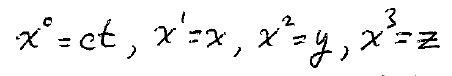 x⁰=ct, x¹=x, x²=y, x³=z